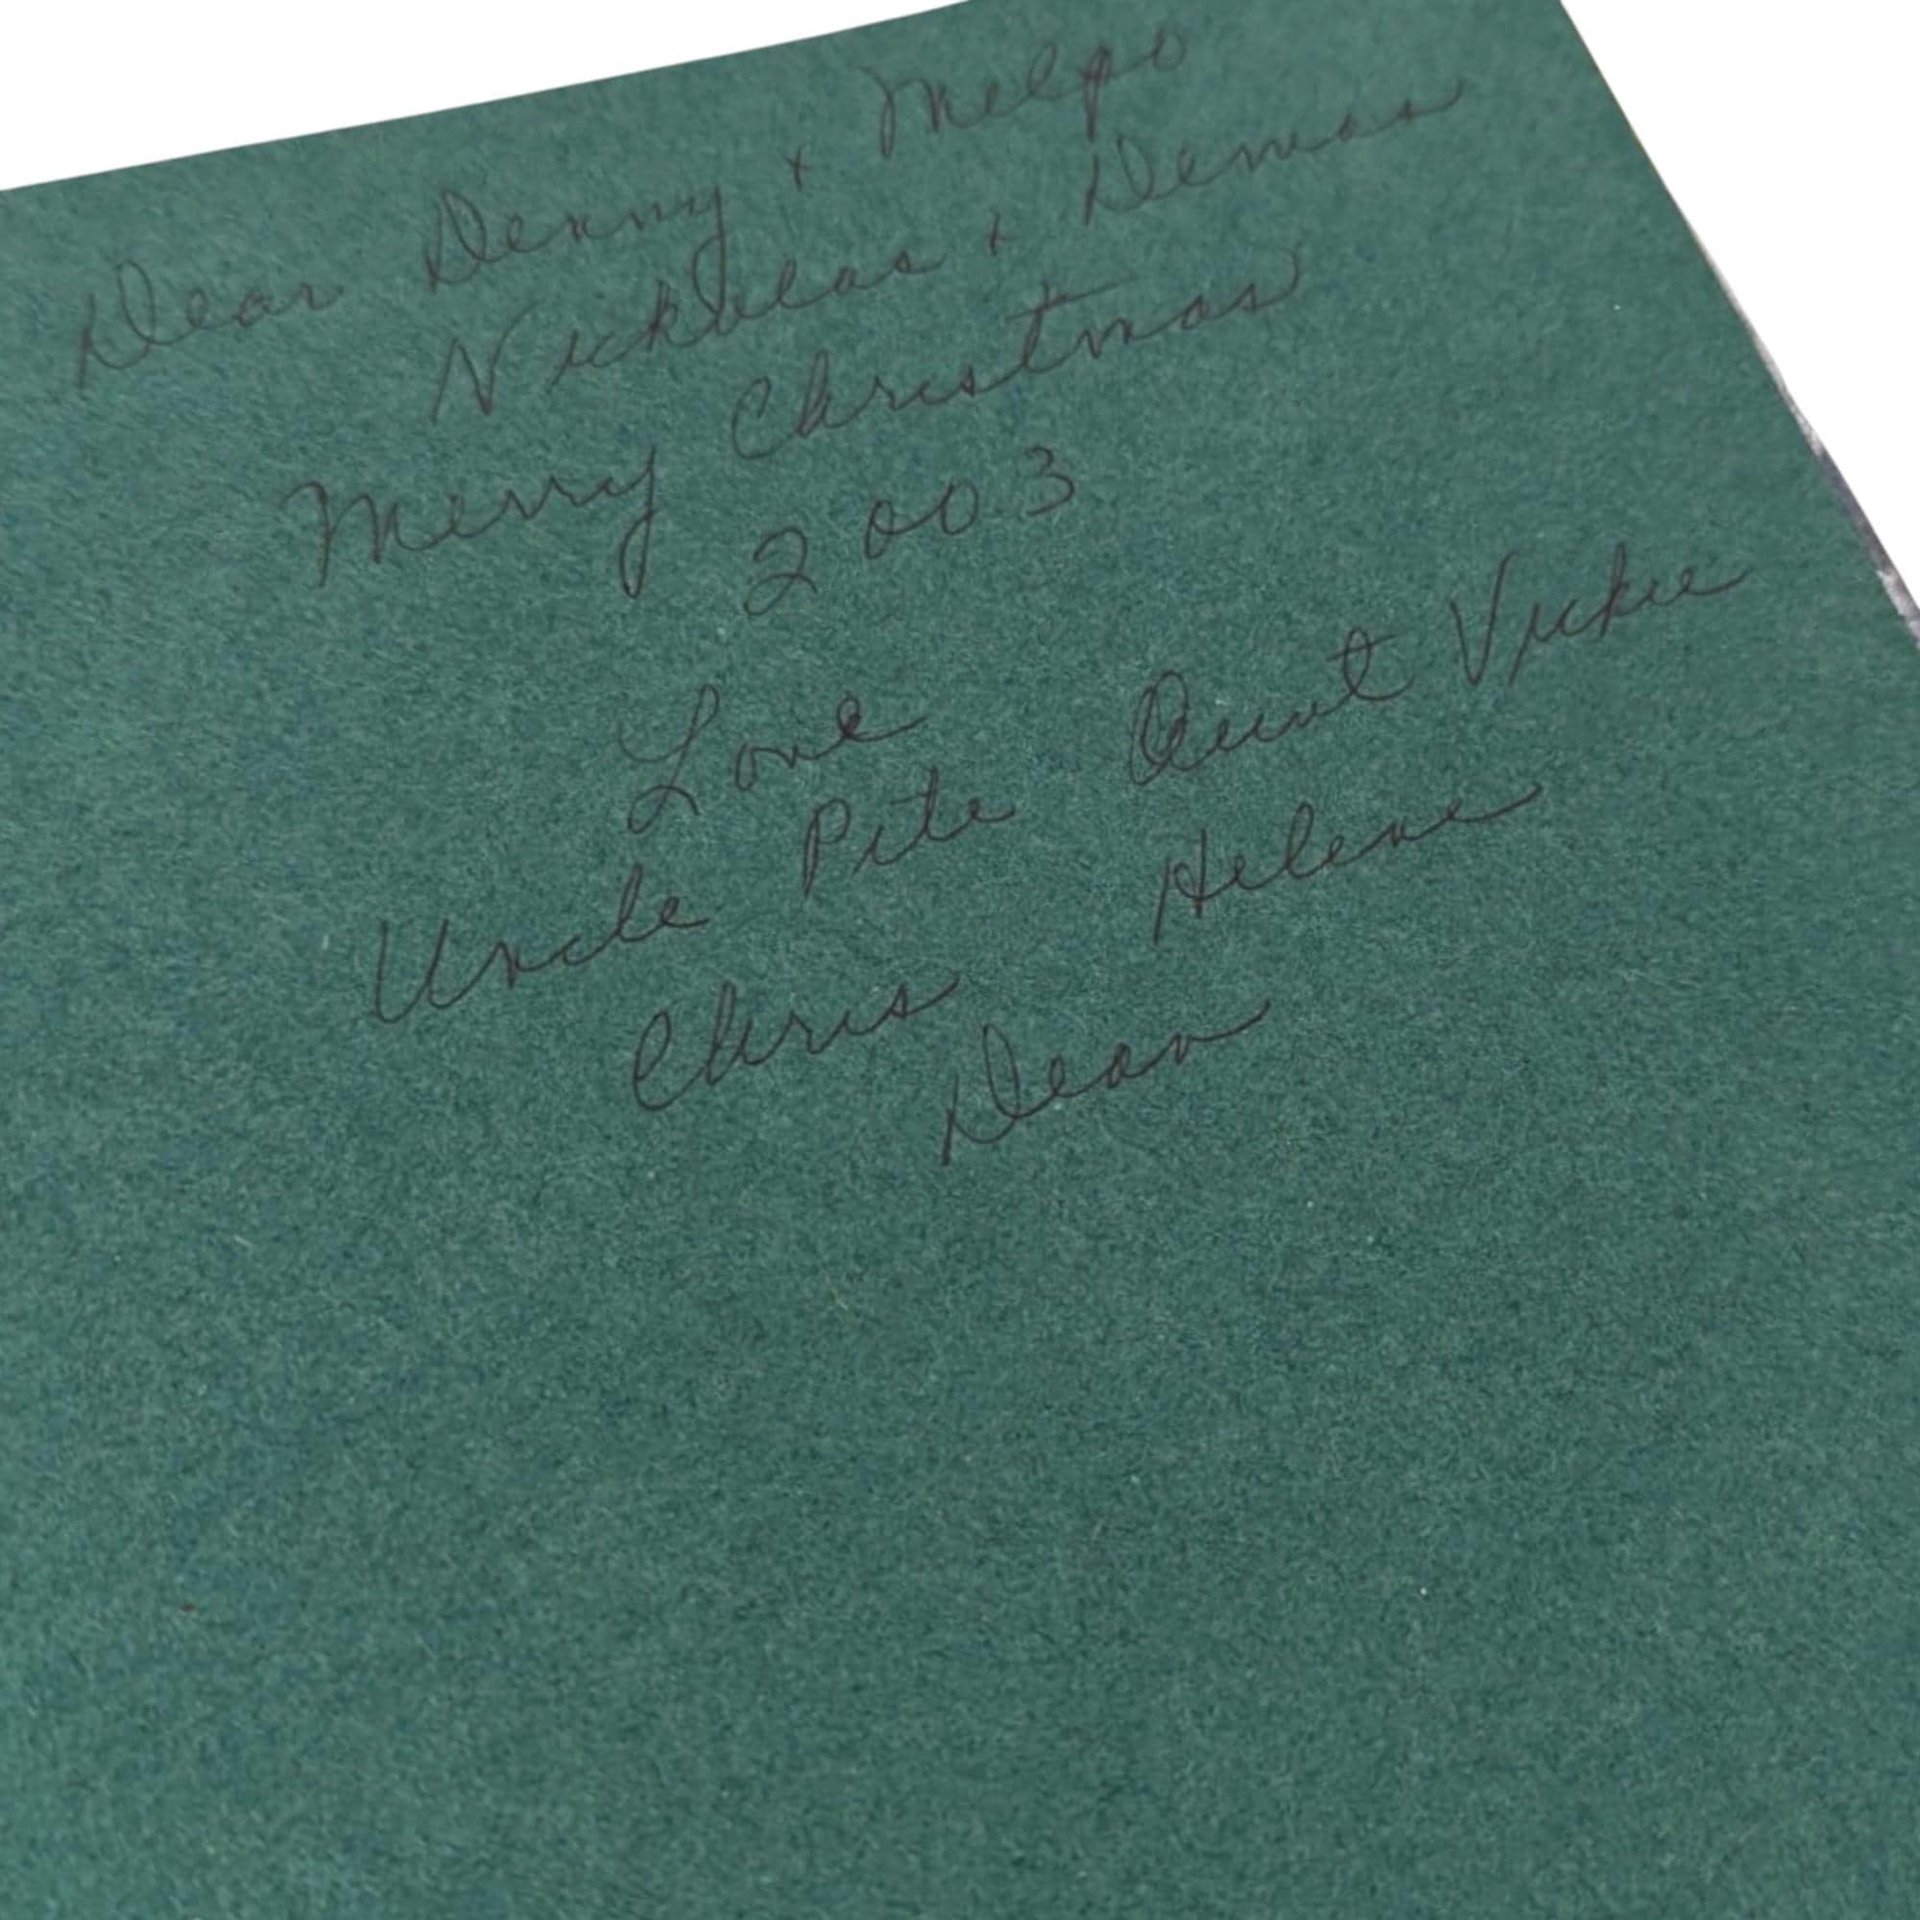 Dear Denny + Melpo
Nickolas + Demas
Merry Christmas
2003
Love
Uncle Pete Aunt Vickie
Chris Helene
Dean